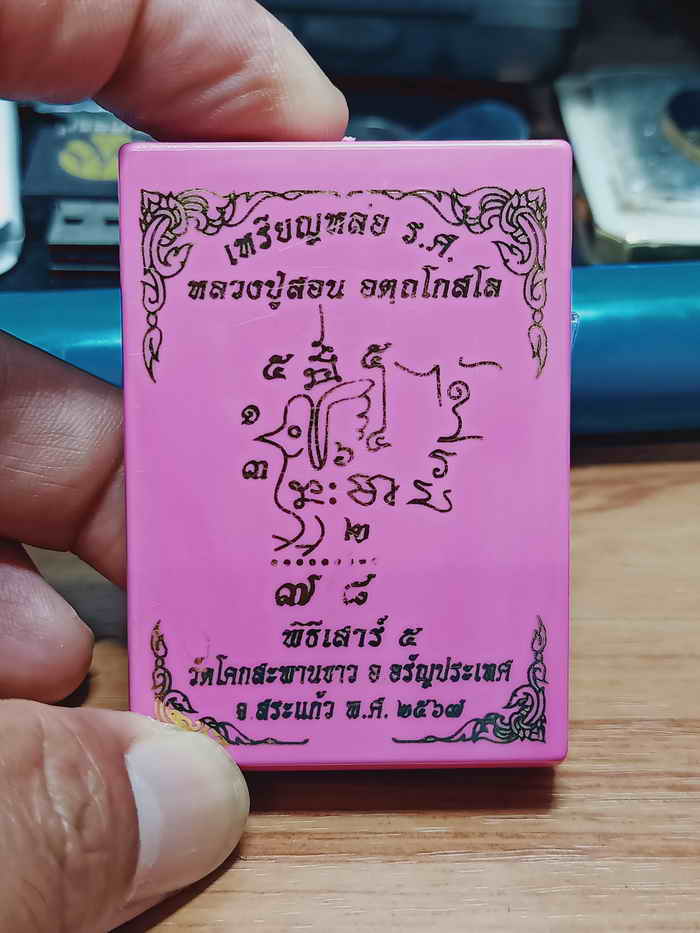 เหรียญหล่อ ร.ศ.
หลวงปู่สอน อตฺถโกสโล
๕ ๕
๑
๓ ๖ ๔
๒
๗ ๘
พิธีเสาร์ ๕
วัดโคกสะพานขาว อ อรัญประเทศ
จ.สระแก้ว พ.ศ. ๒๕๖๗